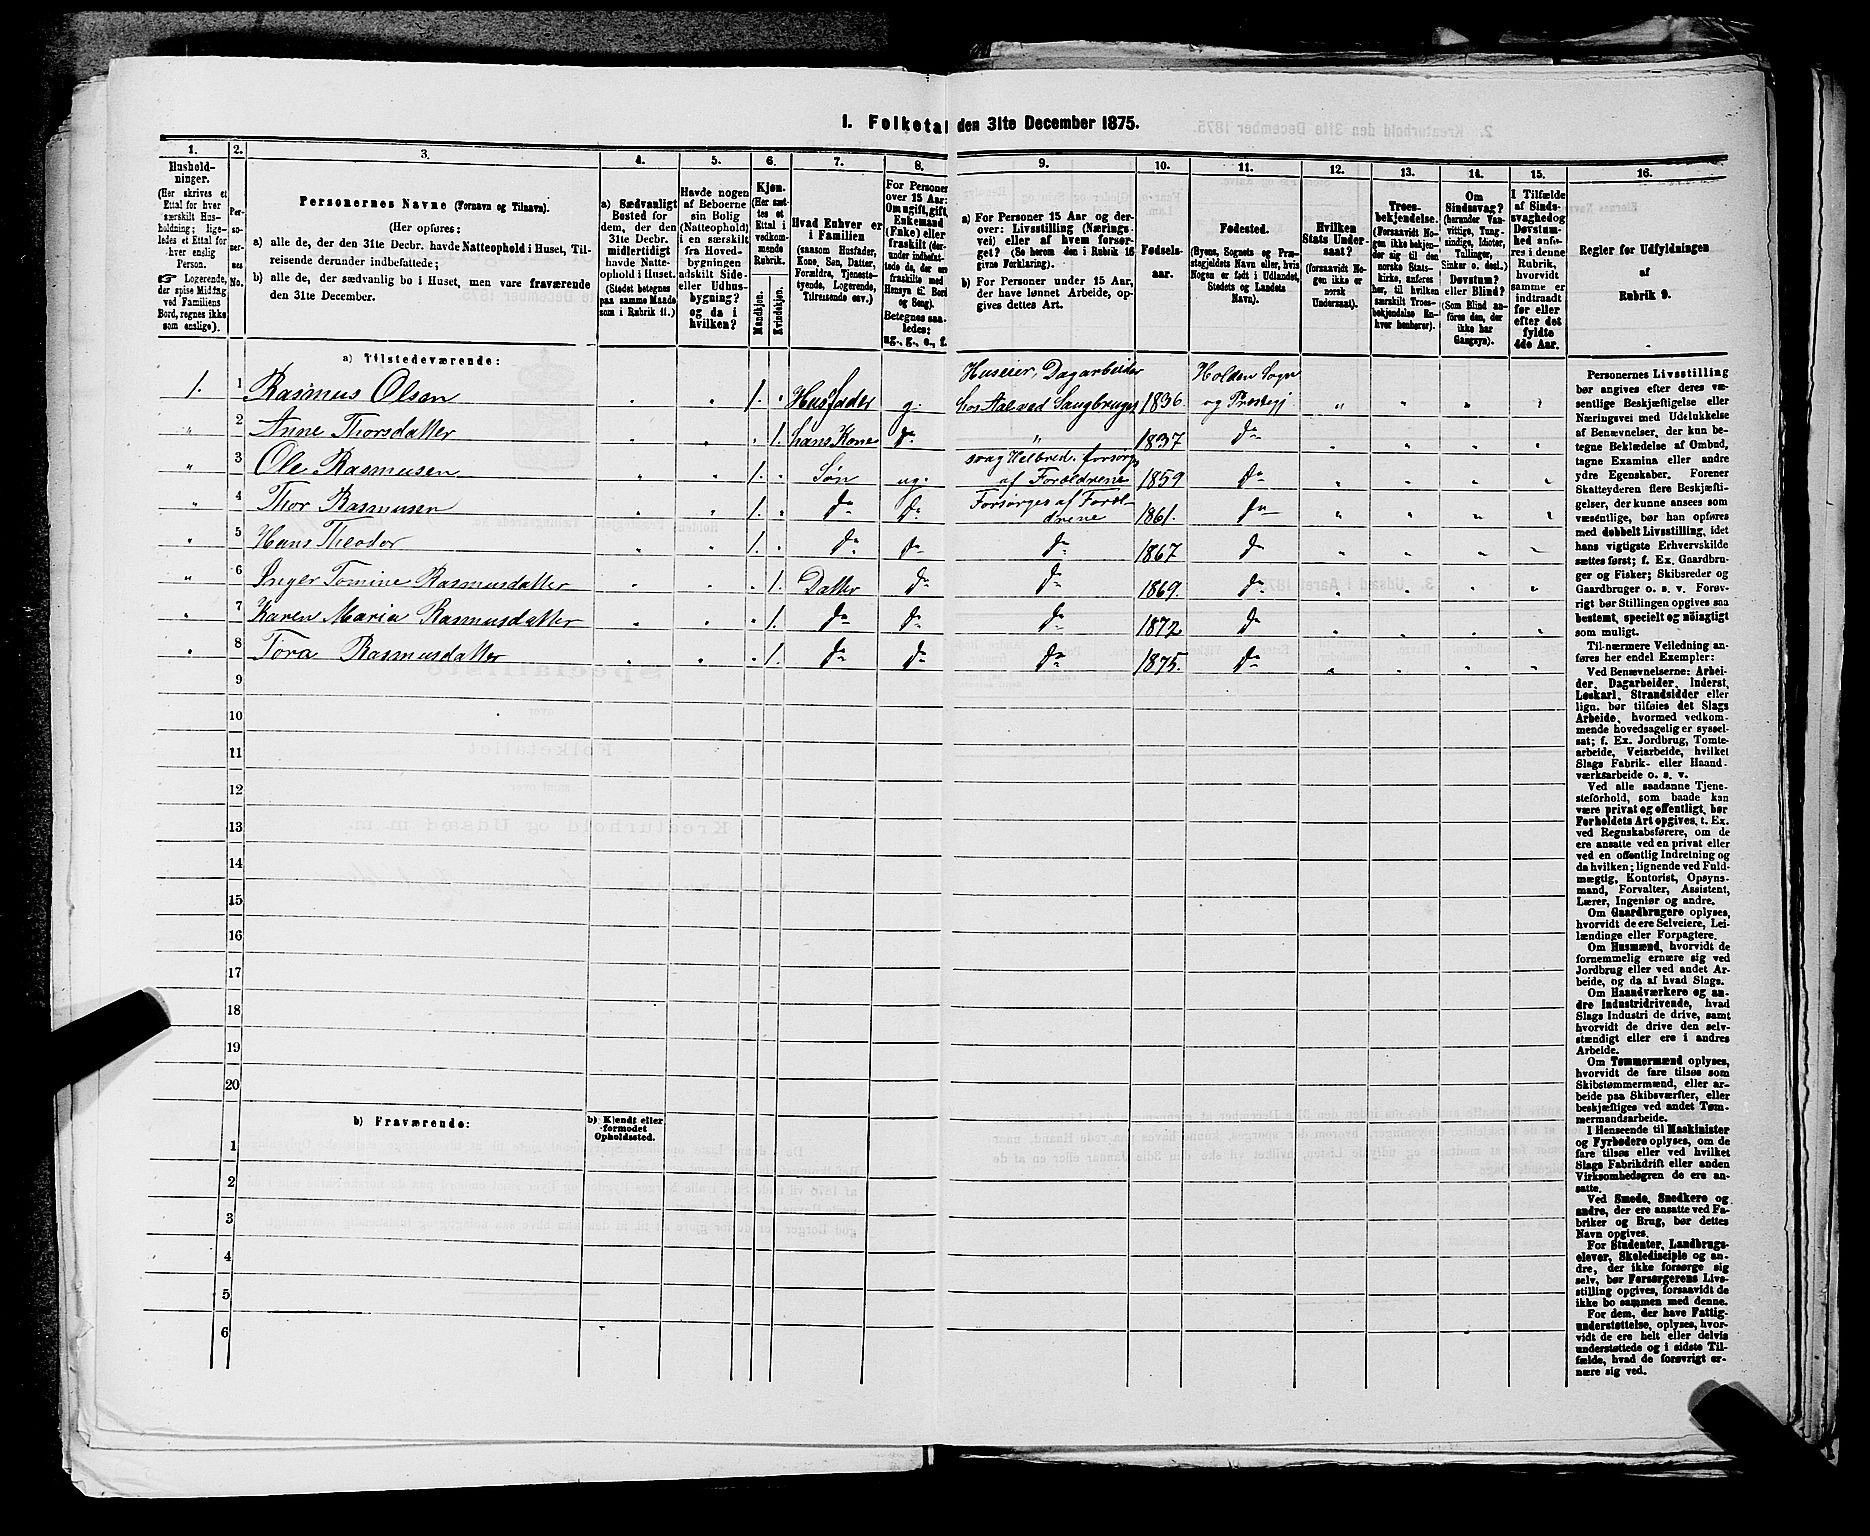 1. Folketal den 31te December 1875.
1. 2. 3. 4. 5. 6. 7. 8. 9. 10. 11. 12. 13. 14. 15. 16.
Husholdninger.
(Her skrives et
Ettal for hver
særskilt Husholdning;
ligeledes et Ettal for
hver enslig
Person.
☞ Logerende,
der spise Middag
ved Familiens
Bord, regnes ikke
som enslige).
Personernes No.
Personernes Navne (Fornavn og Tilnavn).
(Her opføres:
a) alle de, der den 31te Decbr. havde Natteophold i Huset, Tilreisende derunder indbefattede;
b) alle de, der sædvanlig bo i Huset, men vare fraværende
den 31te December.
a) Sædvanligt
Bosted for
dem, der den
31te Decbr.
midlertidigt
havde Natteophold i Huset.
(Stedet betegnes
paa samme Maade
som i Rubrik 11.)
Havde nogen
af Beboerne
sin Bolig
(Natteophold)
i en særskilt
fra Hovedbygningen
adskilt Side-
eller Udhusbygning?
og da i
hvilken?
Kjøn.
(Her sættes et
Ettal i
vedkommende
Rubrik.
Mandkjøn.
Kvindekjøn.
Hvad Enhver er
i Familien
(saasom Husfader,
Kone, Søn, Datter,
Forældre, Tjenestetyende, Logerende,
Tilreisende osv.)
For Personer
over 15 Aar:
Om ugift, gift,
Enkemand
(Enke) eller
fraskilt (derunder indbefattede
da, der ere
fraskilte med
Hensyn til Bord
og Seng).
Betegnes saaledes:
ug., g., e., f.
a) For Personer 15 Aar og derover: Livsstilling (Næringsvei) eller af hvem forsørget? (Se herom den i Rubrik 16
givne Forklaring).
b) For Personer under 15 Aar,
der have lønnet Arbeide, opgives dettes Art.
Fødselsaar.
Fødested.
(Byens, Sognets og Præstegjeldets Navn eller, hvis
Nogen er født i Udlandet,
Stedets og Landets
Navn).
Hvilken
Stats Undersaat?
(forsaavidt Nogen ikke er
norsk
Undersaat).
Troesbekjendelse.
(Forsaavidt Nogen ikke bekjender sig til den
norske Statskirke, anføres
her, til hvilken
særskilt Troesbekjendelse Enhver henhører).
Om
Sindssvag?
(herunder Vanvittige, Tungsindige, Idioter,
Tullinger,
Sinker o. desl.)
Døvstum?
eller Blind?
(Som Blind anføres den, der
ikke har
Gangsyn).
I Tilfælde
af Sindssvaghed og
Døvstumhed anføres i denne
Rubrik,
hvorvidt
samme er
indtraadt
før eller
efter det
fyldte
4de Aar.
Regler for Udfyldningen
af
Rubrik 9.
a) Tilstedeværende:
1. 1 Rasmus Olsen " " 1. " Husfader g. Huseier, Dagarbeider hos Aalevad Saugbruges 1836. Holden Sogn og Prestegj " " " "
" 2 Anne Thorsdatter " " " 1. hans Kone d° " 1837 d° " " " "
" 3 Ole Rasmusen " " 1. " Søn ug. svag Helbred, forsørges af Forældrene 1859 d° " " " "
" 4 Thor Rasmusen " " 1. " d° d° Forsørges af Forældrene 1861. d° " " " "
" 5 Hans Theodor " " 1. " d° d° d° 1867 d° " " " "
" 6 Inger Tomine Rasmusdatter " " " 1. Datter d° d° 1869. d° " " " "
" 7 Karen Maria Rasmusdatter " " " 1. d° d° d° 1872 d° " " " "
" 8 Tora Rasmusdatter " " " 1. d° d° d° 1875. d° " " " "
9
10
11
12
13
14
15
16
17
18
19
20
b) Fraværende:
b) Kjendt eller
formodet
Opholdssted.
1
2
3
4
5
6
Personernes Livsstilling
bør angives efter deres væsentlige Beskjæftigelse eller
Næringsvei med Udelukkelse
af Benævnelser, der kun betegne Beklædelse af Ombud,
tagne Examina eller andre
ydre Egenskaber. Forener
Skatteyderen flere Beskjæftigelser, der kunne ansees som
væsentlige, bør han opføres
med dobbelt Livsstilling, idet
hans vigtigste Erhvervskilde
sættes først; f. Ex. Gaardbruger og Fisker; Skibsreder og
Gaardbruger o. s. v. Forøvrigt bør Stillingen opgives saa
bestemt, specielt og nöiagtigt
som muligt.
Til nærmere Veiledning anføres her endel Exempler:
Ved Benævnelserne: Arbeider, Dagarbeider, Inderst,
Løskarl, Strandsidder eller
lign. bør tilføies det Slags
Arbeide, hvormed vedkommende hovedsagelig er sysselsat; f. Ex. Jordbrug, Tomtearbeide, Veiarbeide, hvilket
Slags Fabrik- eller Haandværksarbeide o. s. v.
Ved alle saadanne Tjenesteforhold, som baade kan
være privat og offentligt, bør
Forholdets Art opgives, t. Ex.
ved Regnskabsførere, om de
ere ansatte ved en privat eller
ved en offentlig Indretning og
da hvilken; lignende ved Fuldmægtig, Kontorist, Opsynsmand, Forvalter, Assistent,
Lærer, Ingeniør og andre.
Om Gaardbrugere oplyses,
hvorvidt de ere Selveiere, Leilændinge eller Forpagtere.
Om Husmænd, hvorvidt de
fornemmelig ernære sig ved
Jordbrug eller ved andet Arbeide, og da af hvad Slags.
Om Haandværkere og andre Industridrivende, hvad
Slags Industri de drive, samt
hvorvidt de drive den selvstændigt eller ere i andres
Arbeide.
Om Tømmermænd oplyses,
hvorvidt de fare tilsøs som
Skibstømmermænd, eller arbeide paa Skibsværfter, eller
beskjæftiges ved andet Tømmermandsarbeide.
I Henseende til Maskinister
og Fyrbødere oplyses, om de
fare tilsøs eller ved hvilket
Slags Fabrikdrift eller anden
Virksomhedsgren de ere ansatte.
Ved Smede, Snedkere og
andre, der ere ansatte ved Fabriker og Brug, bør dettes
Navn opgives.
For Studenter, Landbrugselever, Skoledisciple og andre, der ikke forsørge sig
selv, bør Forsørgerens Livsstilling opgives, forsaavidt de
ikke bo sammen med denne.
For dem, der have Fattigunderstøttelse, oplyses, hvorvidt de ere helt eller delvis
understøttede og i sidste Tilfælde, hvad de forøvrigt ernære sig ved.